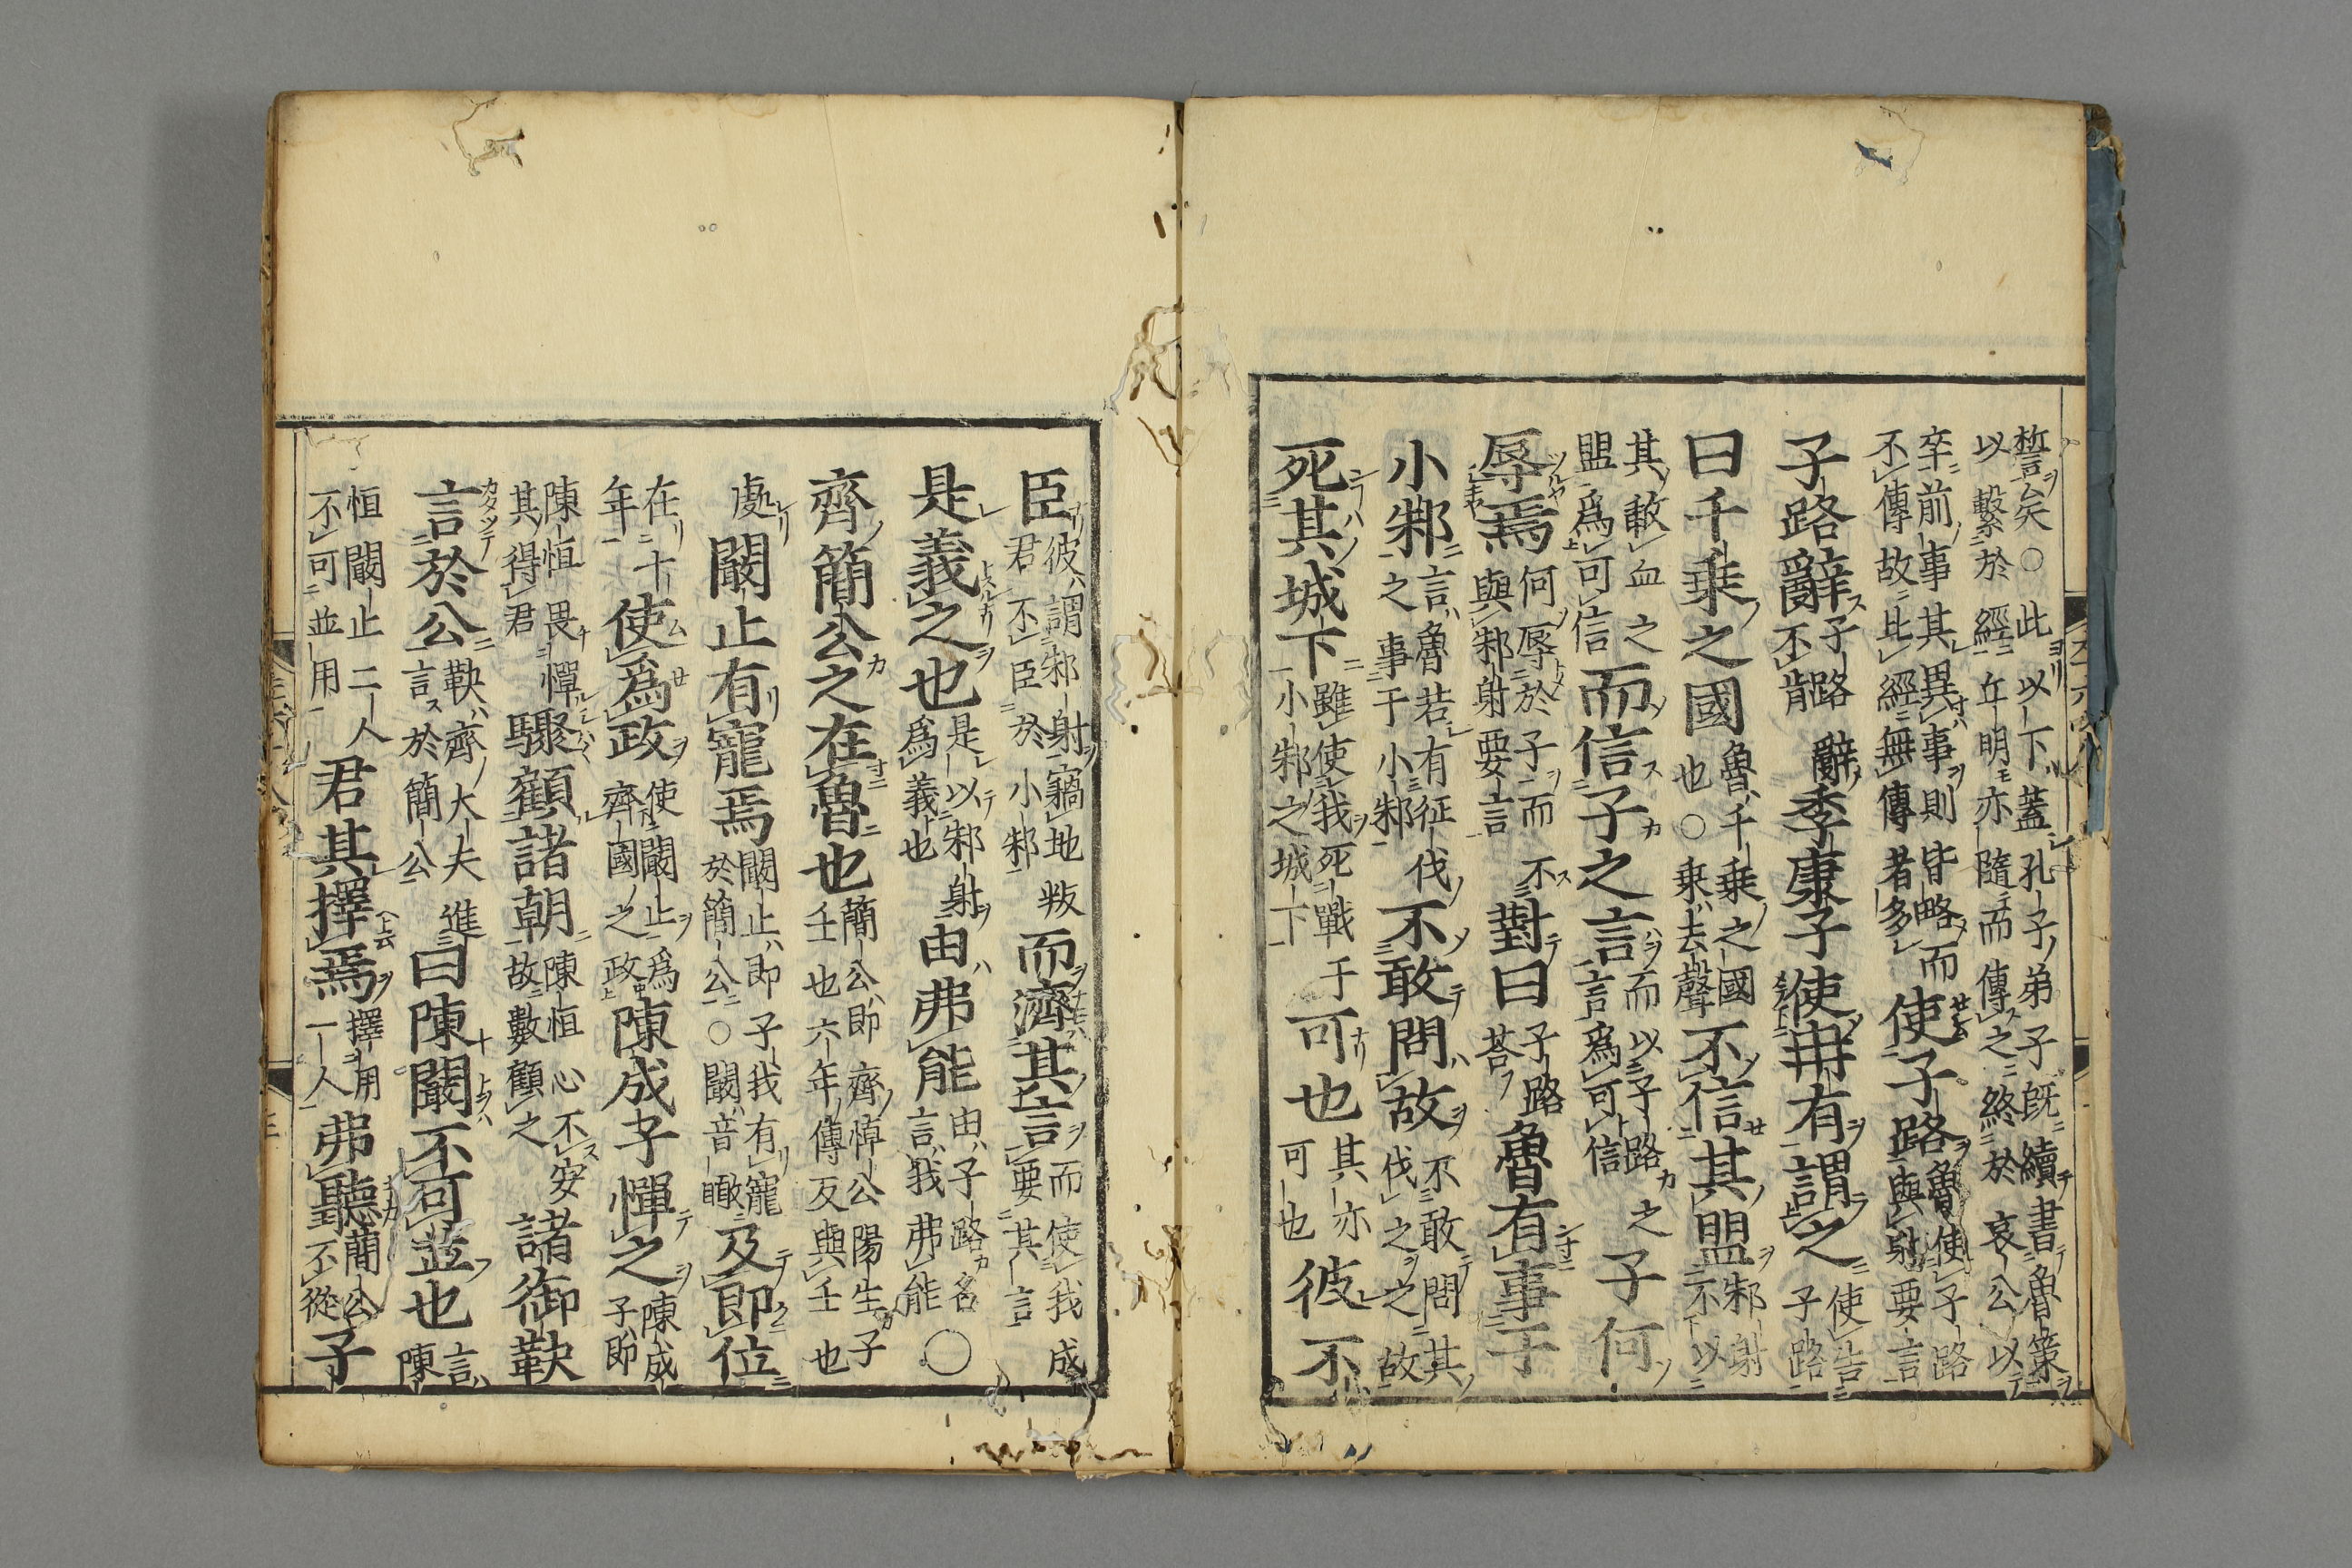 誓矣○此以下蓋孔子弟子既續書魯策
以繫於經丘明亦隨而傳之終於哀公以
卒前事其異事則皆略而不傳故此經無傳者多使子路魯使子路與射要言
子路辭子路辭不肯季康子使冉有謂之使告子路
曰千乘之國魯千乘之國也○乘去聲不信其盟邾射不以
其歃血之盟爲可信而信子之言而以子路之言爲可信子何
辱焉何辱於子而不與邾射要言對曰子路荅魯有事于
小邾言魯若有征伐之事于小邾不敢問故不敢問其故伐之之故
死其城下雖使我死戰于小邾之城下可也其亦可也彼不
臣彼謂邾射竊地叛君不臣於小邾而濟其言而使我成要其言
是義之也是以邾射爲義也由弗能由子路名言我弗能○
齊簡公之在魯也簡公即齊悼公陽生子壬也六年傳反與壬也
處闞止有寵焉闞止即子我有寵於簡公○闞音瞰及即位
在十年使爲政使闞止爲齊國之政陳成子憚之陳成子即
陳恒畏憚其得君驟顧諸朝陳恒心不安故數顧之諸御鞅
言於公鞅齊大夫進言於簡公曰陳闞不可並也言陳
恒闞止二人不可並用君其擇焉擇用一人弗聽簡公不從子